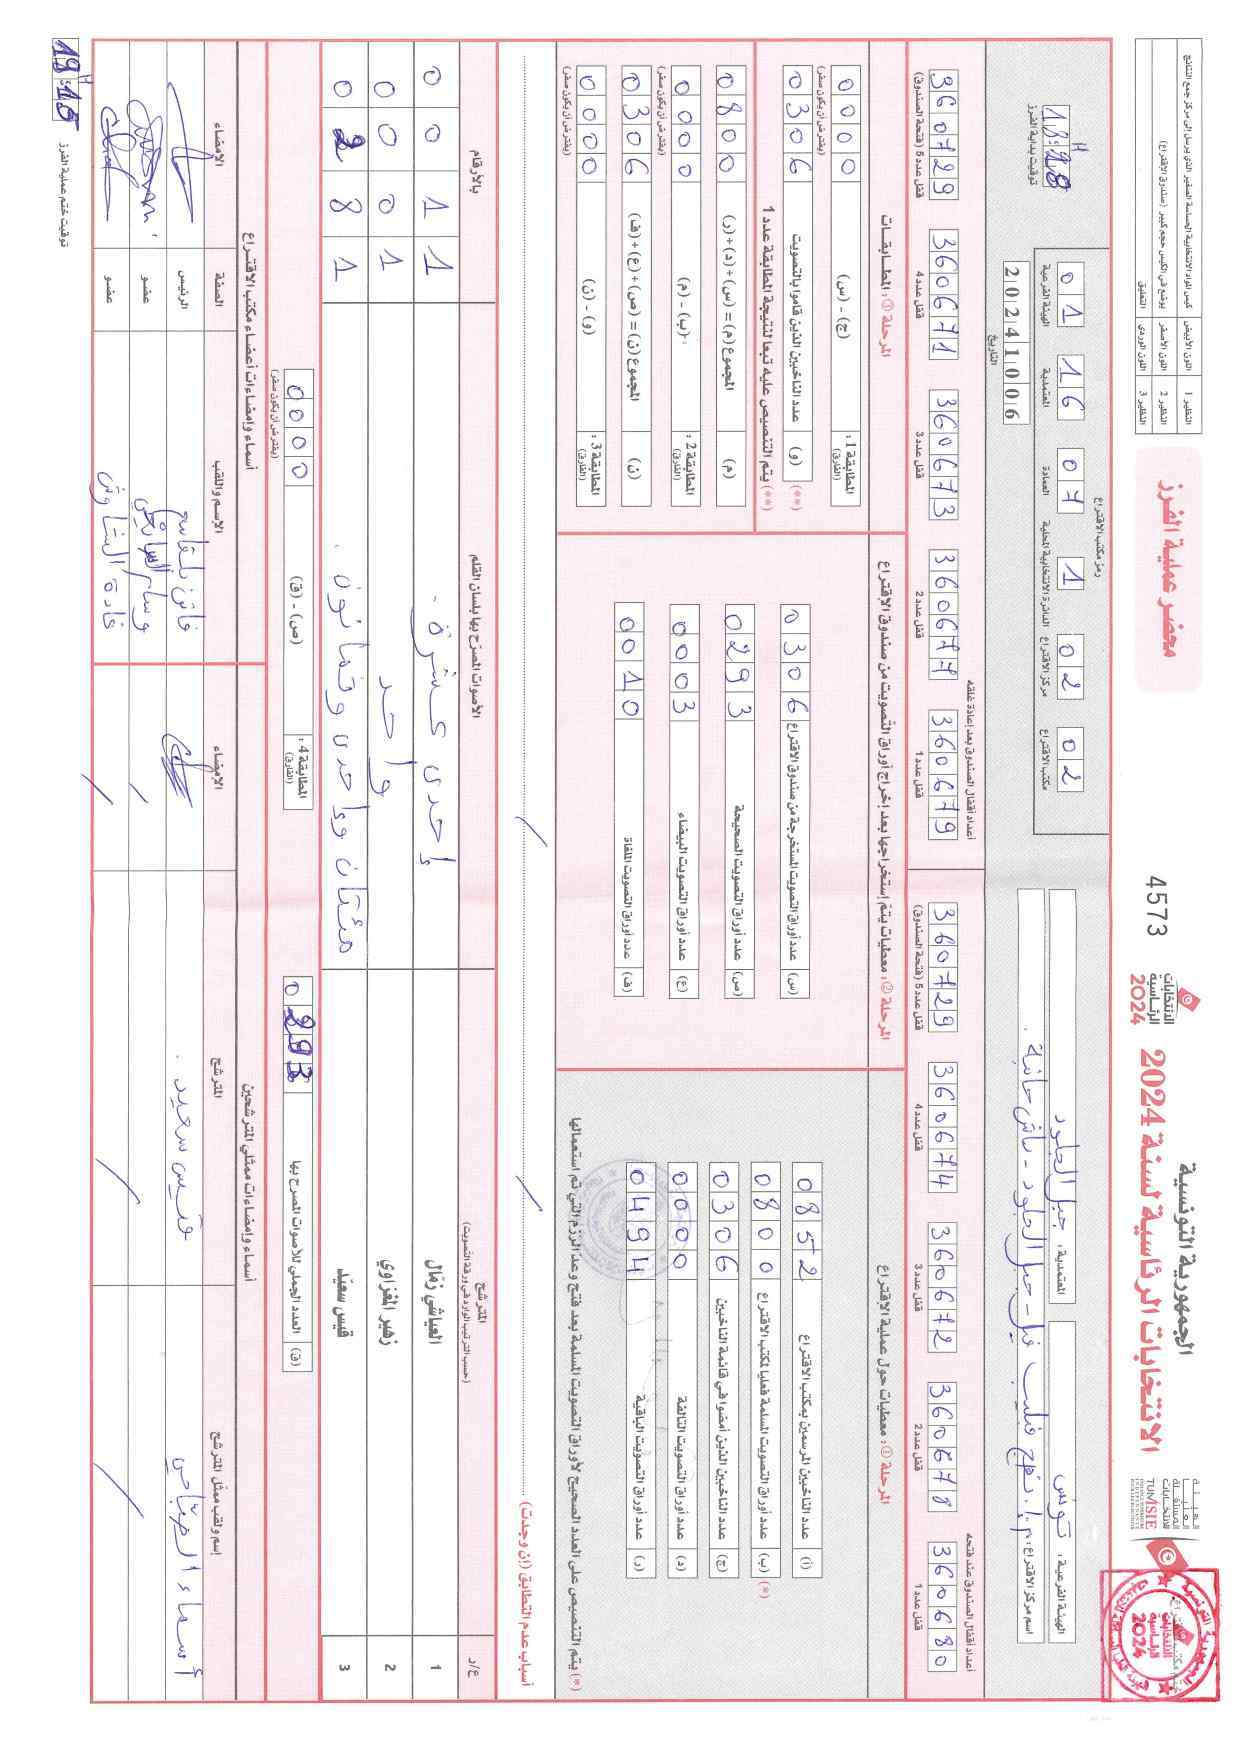 الجمهورية التونسية
الانتخابات الرئاسية لسنة 2024
الانتخابات
الرئاسية
2024
4573
محضر عملية الفرز
النظير 1 اللون الأبيض كيس المواد الانتخابية الحساسة الصغير الذي يرسل إلى مركز جمع النتائج
النظير 2 اللون الأصفر يوضع في الكيس حجم كبير (صندوق الاقتراع)
النظير 3 اللون الوردي التعليق
الهيئة الفرعية: تونس
المعتمدية: جبل الجلود
اسم مركز الاقتراع:
رمز مكتب الاقتراع
01 16 07 1 02 02
الهيئة الفرعية المعتمدية العمادة الدائرة الانتخابية المحلية مركز الاقتراع مكتب الاقتراع
20241006
التاريخ
توقيت بداية الفرز
أعداد أقفال الصندوق عند فتحه
360680 360678 360672 360674 360729
قفل عدد 1 قفل عدد 2 قفل عدد 3 قفل عدد 4 قفل عدد 5 (فتحة الصندوق)
أعداد أقفال الصندوق بعد إعادة غلقه
360679 360677 360673 360671 360729
قفل عدد 1 قفل عدد 2 قفل عدد 3 قفل عدد 4 قفل عدد 5 (فتحة الصندوق)
المرحلة ①: معطيات حول عملية الاقتراع
(أ) عدد الناخبين المرسمين بمكتب الاقتراع 0852
(*) (ب) عدد أوراق التصويت المسلمة فعليا لمكتب الاقتراع 0800
(ج) عدد الناخبين الذين أمضوا في قائمة الناخبين 0306
(د) عدد أوراق التصويت التالفة 0000
(ر) عدد أوراق التصويت الباقية 0494
(*) يتم التنصيص على العدد الصحيح لأوراق التصويت المسلمة بعد فتح وعد الرزم التي تم استعمالها
المرحلة ②: معطيات يتم إستخراجها بعد إخراج أوراق التصويت من صندوق الاقتراع
(س) عدد أوراق التصويت المستخرجة من صندوق الاقتراع 0306
(ص) عدد أوراق التصويت الصحيحة 0293
(ع) عدد أوراق التصويت البيضاء 0003
(ف) عدد أوراق التصويت الملغاة 0010
المرحلة ③: المطابقات
المطابقة 1: (الفارق) (ج) - (س) 0000 (يفترض أن يكون صفر)
(**) (و) عدد الناخبين الذين قاموا بالتصويت 0306
(**) يتم التنصيص عليه تبعا لنتيجة المطابقة عدد 1
(م) المجموع (م) = (س)+(د)+(ر) 0800
المطابقة 2: (الفارق) (ب) - (م) 0000 (يفترض أن يكون صفر)
(ن) المجموع (ن) = (ص)+(ع)+(ف) 0306
المطابقة 3: (الفارق) (و) - (ن) 0000 (يفترض أن يكون صفر)
أسباب عدم التطابق (إن وجدت)
ع/د المترشح (حسب الترتيب الوارد في ورقة التصويت) الأصوات المصرح بها بلسان القلم بالأرقام
1 العياشي زمّال إحدى عشرة 0011
2 زهير المغزاوي واحد 0001
3 قيس سعيّد مئتان وواحدى وثمانون 0281
(ق) العدد الجملي للأصوات المصرح بها 0293
المطابقة 4: (الفارق) (ص) - (ق) 0000 (يفترض أن يكون صفر)
أسماء وإمضاءات ممثلي المترشحين
إسم ولقب ممثل المترشح المترشح الإمضاء
قيس سعيد
أسماء وإمضاءات أعضاء مكتب الاقتراع
الإسم واللقب الصفة الامضاء
فاتن بلقاسم الرئيس
عضو
غادة الشاوش عضو
توقيت ختم عملية الفرز